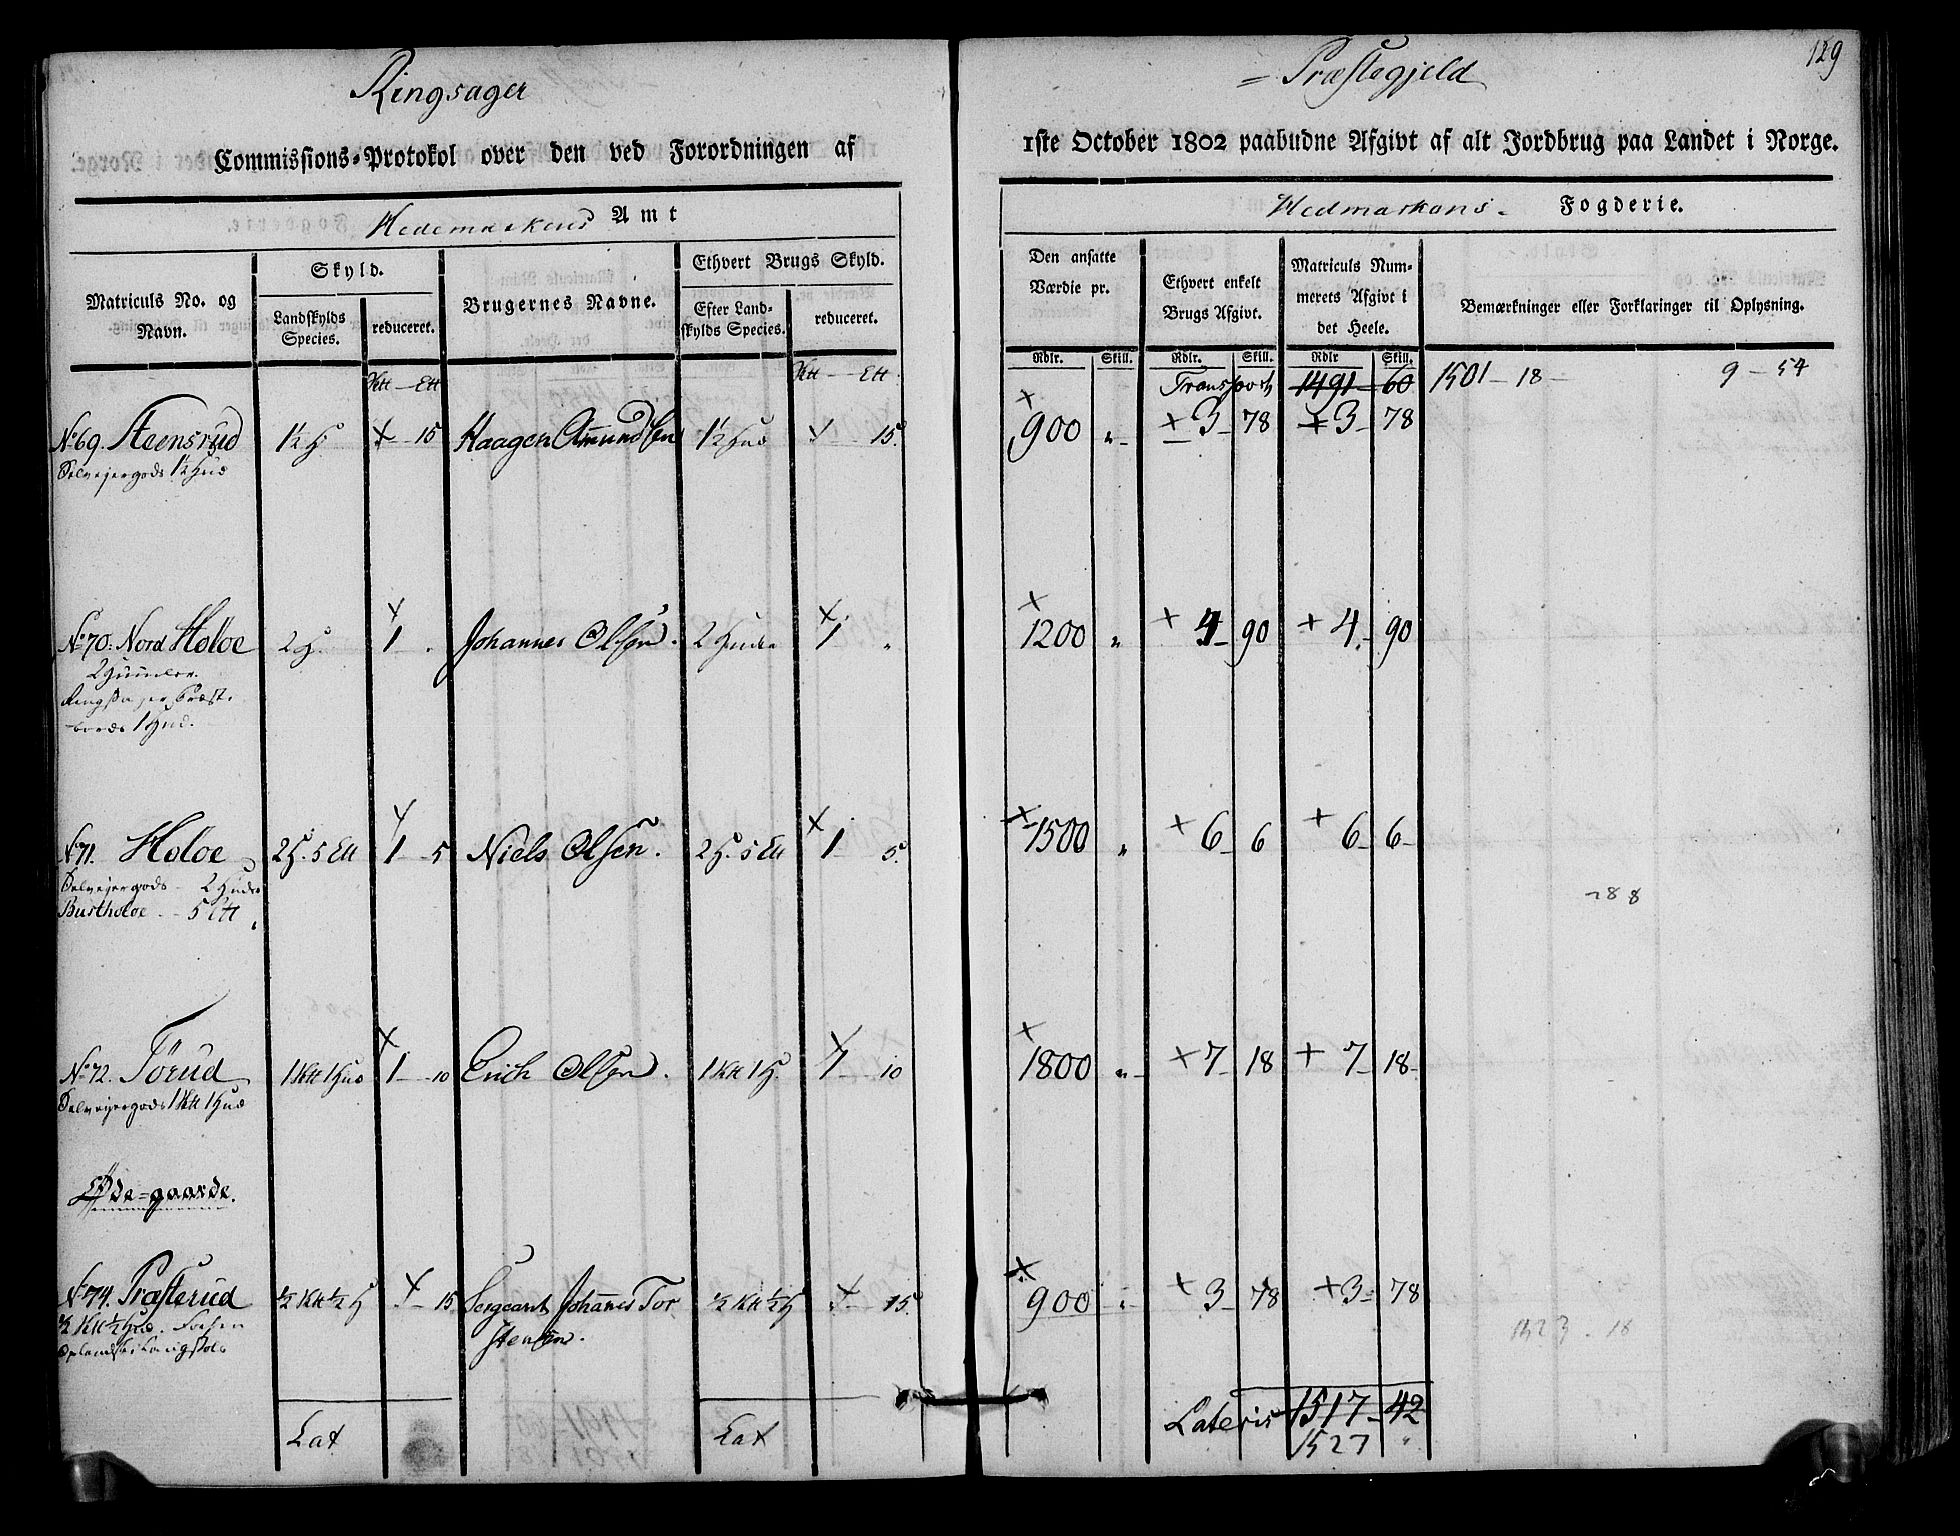 129
Ringsager = Præstegjeld
Commissions-Protokol over den ved Forordningen af 1ste October 1802 paabudne Afgivt af alt Jordbrug paa Landet i Norge.
Hedemarkens Amt
Hedmarkens Fogderie.
Matriculs No. og Navn.
Skyld.
Landskylds Species.
reduceret.
Brugernes Navne.
Ethvert Brugs Skyld.
Efter Landskylds Species.
reduceret.
Den ansatte Værdie pr.
Ethvert enkelt Brugs Afgivt.
Matriculs Nummerets Afgivt i det Heele.
Bemærkninger eller Forklaringer til Oplysning.
Rdlr. Skill. Rdlr. Skill. Rdlr Skill.
Ktt — Ett Ktt — Ett Transport 1491 — 60 1501 — 18 — 9 — 54
No 69. Steensrud 1½ H 15 Haagen Amundsen 1½ Hud 15. 900 „ 3 — 78 3 — 78
Selvejergods 1½ Hud
No 70. Nord Holoe 2 H. 1 „ Johannes Olsen. 2 Huder 1 „ 1200 „ 4 — 90 4 — 90
2 Huder.
Ringsager Præste
bords 1 Hud.
No 71. Holoe 2 H. 5 Ett 1 5 Niels Olsen. 2 H. 5 Ett 1 — 5. 1500 „ 6 — 6 6 — 6
Selvejergods — 2 Huder
Burstholoe — 5 Ett
No 72. Törud 1 Ktt 1 Hud 1 — 10 Erich Olsen. 1 Ktt 1 H. 1 — 10 1800 „ 7 — 18 7 — 18
Selvejergods 1 Ktt 1 Hud
Øde-gaarde.
No 74. Præsterud ½ Ktt ½ H — 15 Sergeant Johannes Tor ½ Ktt ½ H — 15. 900 „ 3 — 78 3 — 78
½ Ktt ½ Hud.
stensen.
1523 - 18
Lat Lat Lateris 1517 — 42
1527 „